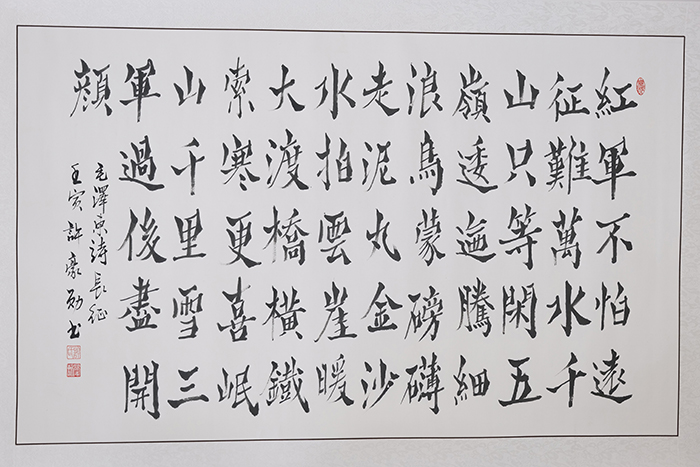 紅軍不怕遠
征難萬水千
山只等閑五
嶺逶迤騰細
浪烏蒙磅礴
走泥丸金沙
水拍雲崖暖
大渡橋橫鐵
索寒更喜岷
山千里雪三
軍過後盡開
顏
毛澤東詩長征
壬寅許豪勋书